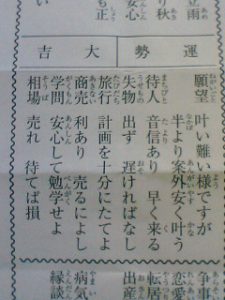 立雨
り秋
も正
い
運勢 大吉
願望 叶い難い様ですが
半より案外安く叶う
待人 音信あり 早く来る
失物 出ず 遅ければなし
旅行 計画を十分にたてよ
商売 利あり 売るによし
学問 安心して勉学せよ
相場 売れ 待てば損
争事
恋愛
転居
出産
病気
縁談